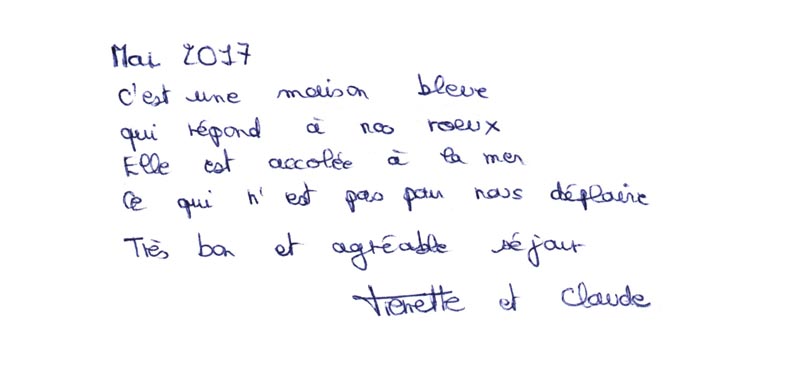 Mai 2017
c'est une maison bleue
qui répond à nos voeux
Elle est accolée à la mer
Ce qui n'est pas pour nous déplaire
Très bon et agréable séjour
et Claude